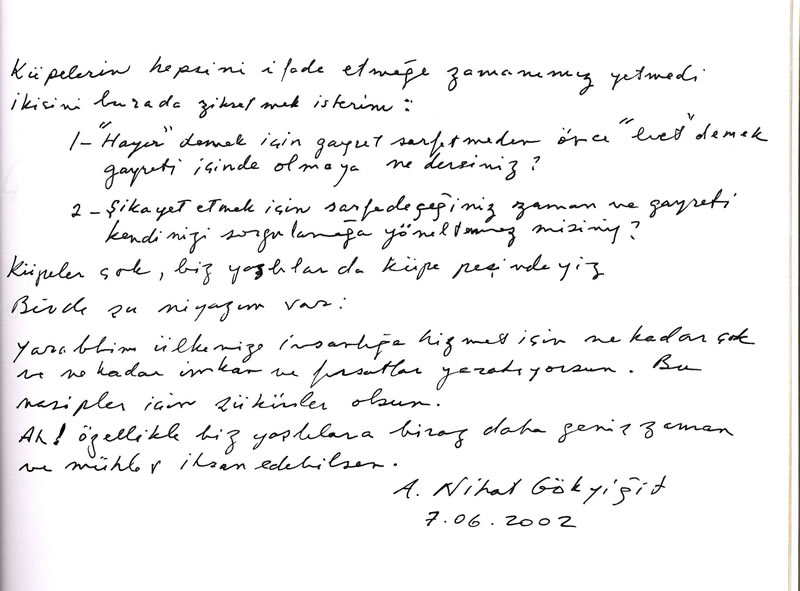 Küpelerin hepsini ifade etmeğe zamanımız yetmedi
ikisini burada zikretmek isterim:
1- "Hayır" demek için gayret sarfetmeden önce "evet" demek
gayreti içinde olmaya ne dersiniz?
2- Şikayet etmek için sarfedeceğiniz zaman ve gayreti
kendinizi sorgulamağa yöneltemez misiniz?
Küpeler çok, biz yaşlılar da küpe peşindeyiz
Birde şu niyazım var:
Yarabbim ülkemize insanlığa hizmet için ne kadar çok
ve ne kadar imkan ve fırsatlar yaratıyorsun. Bu
nasipler için şükürler olsun.
Ah! özellikle biz yaşlılara biraz daha geniş zaman
ve mühlet ihsan edebilsen.
A. Nihat Gökyiğit
7.06.2002